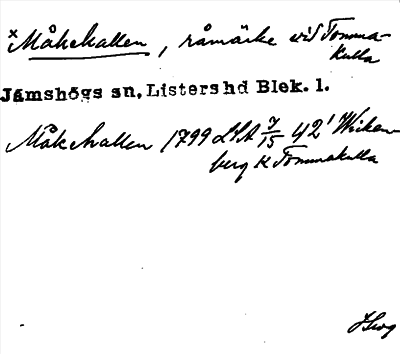 × Måkehallen, råmärke vid Tomma-
kulla
Jämshögs sn, Listers hd Blek. l.
Måkehallen 1799 LSA 7/15 42' Wirken-
berg K Tommakulla